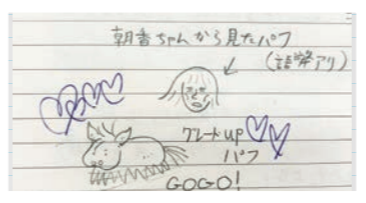 朝香ちゃんから見たパフ
(誤解アリ)
グレードup
パフ
GOGO!